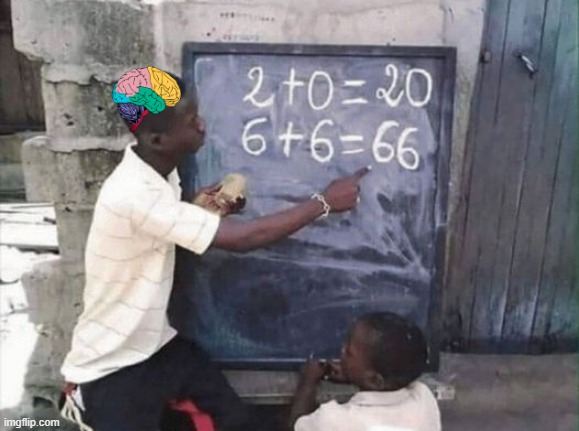 2+0=20
6+6=66
imgflip.com